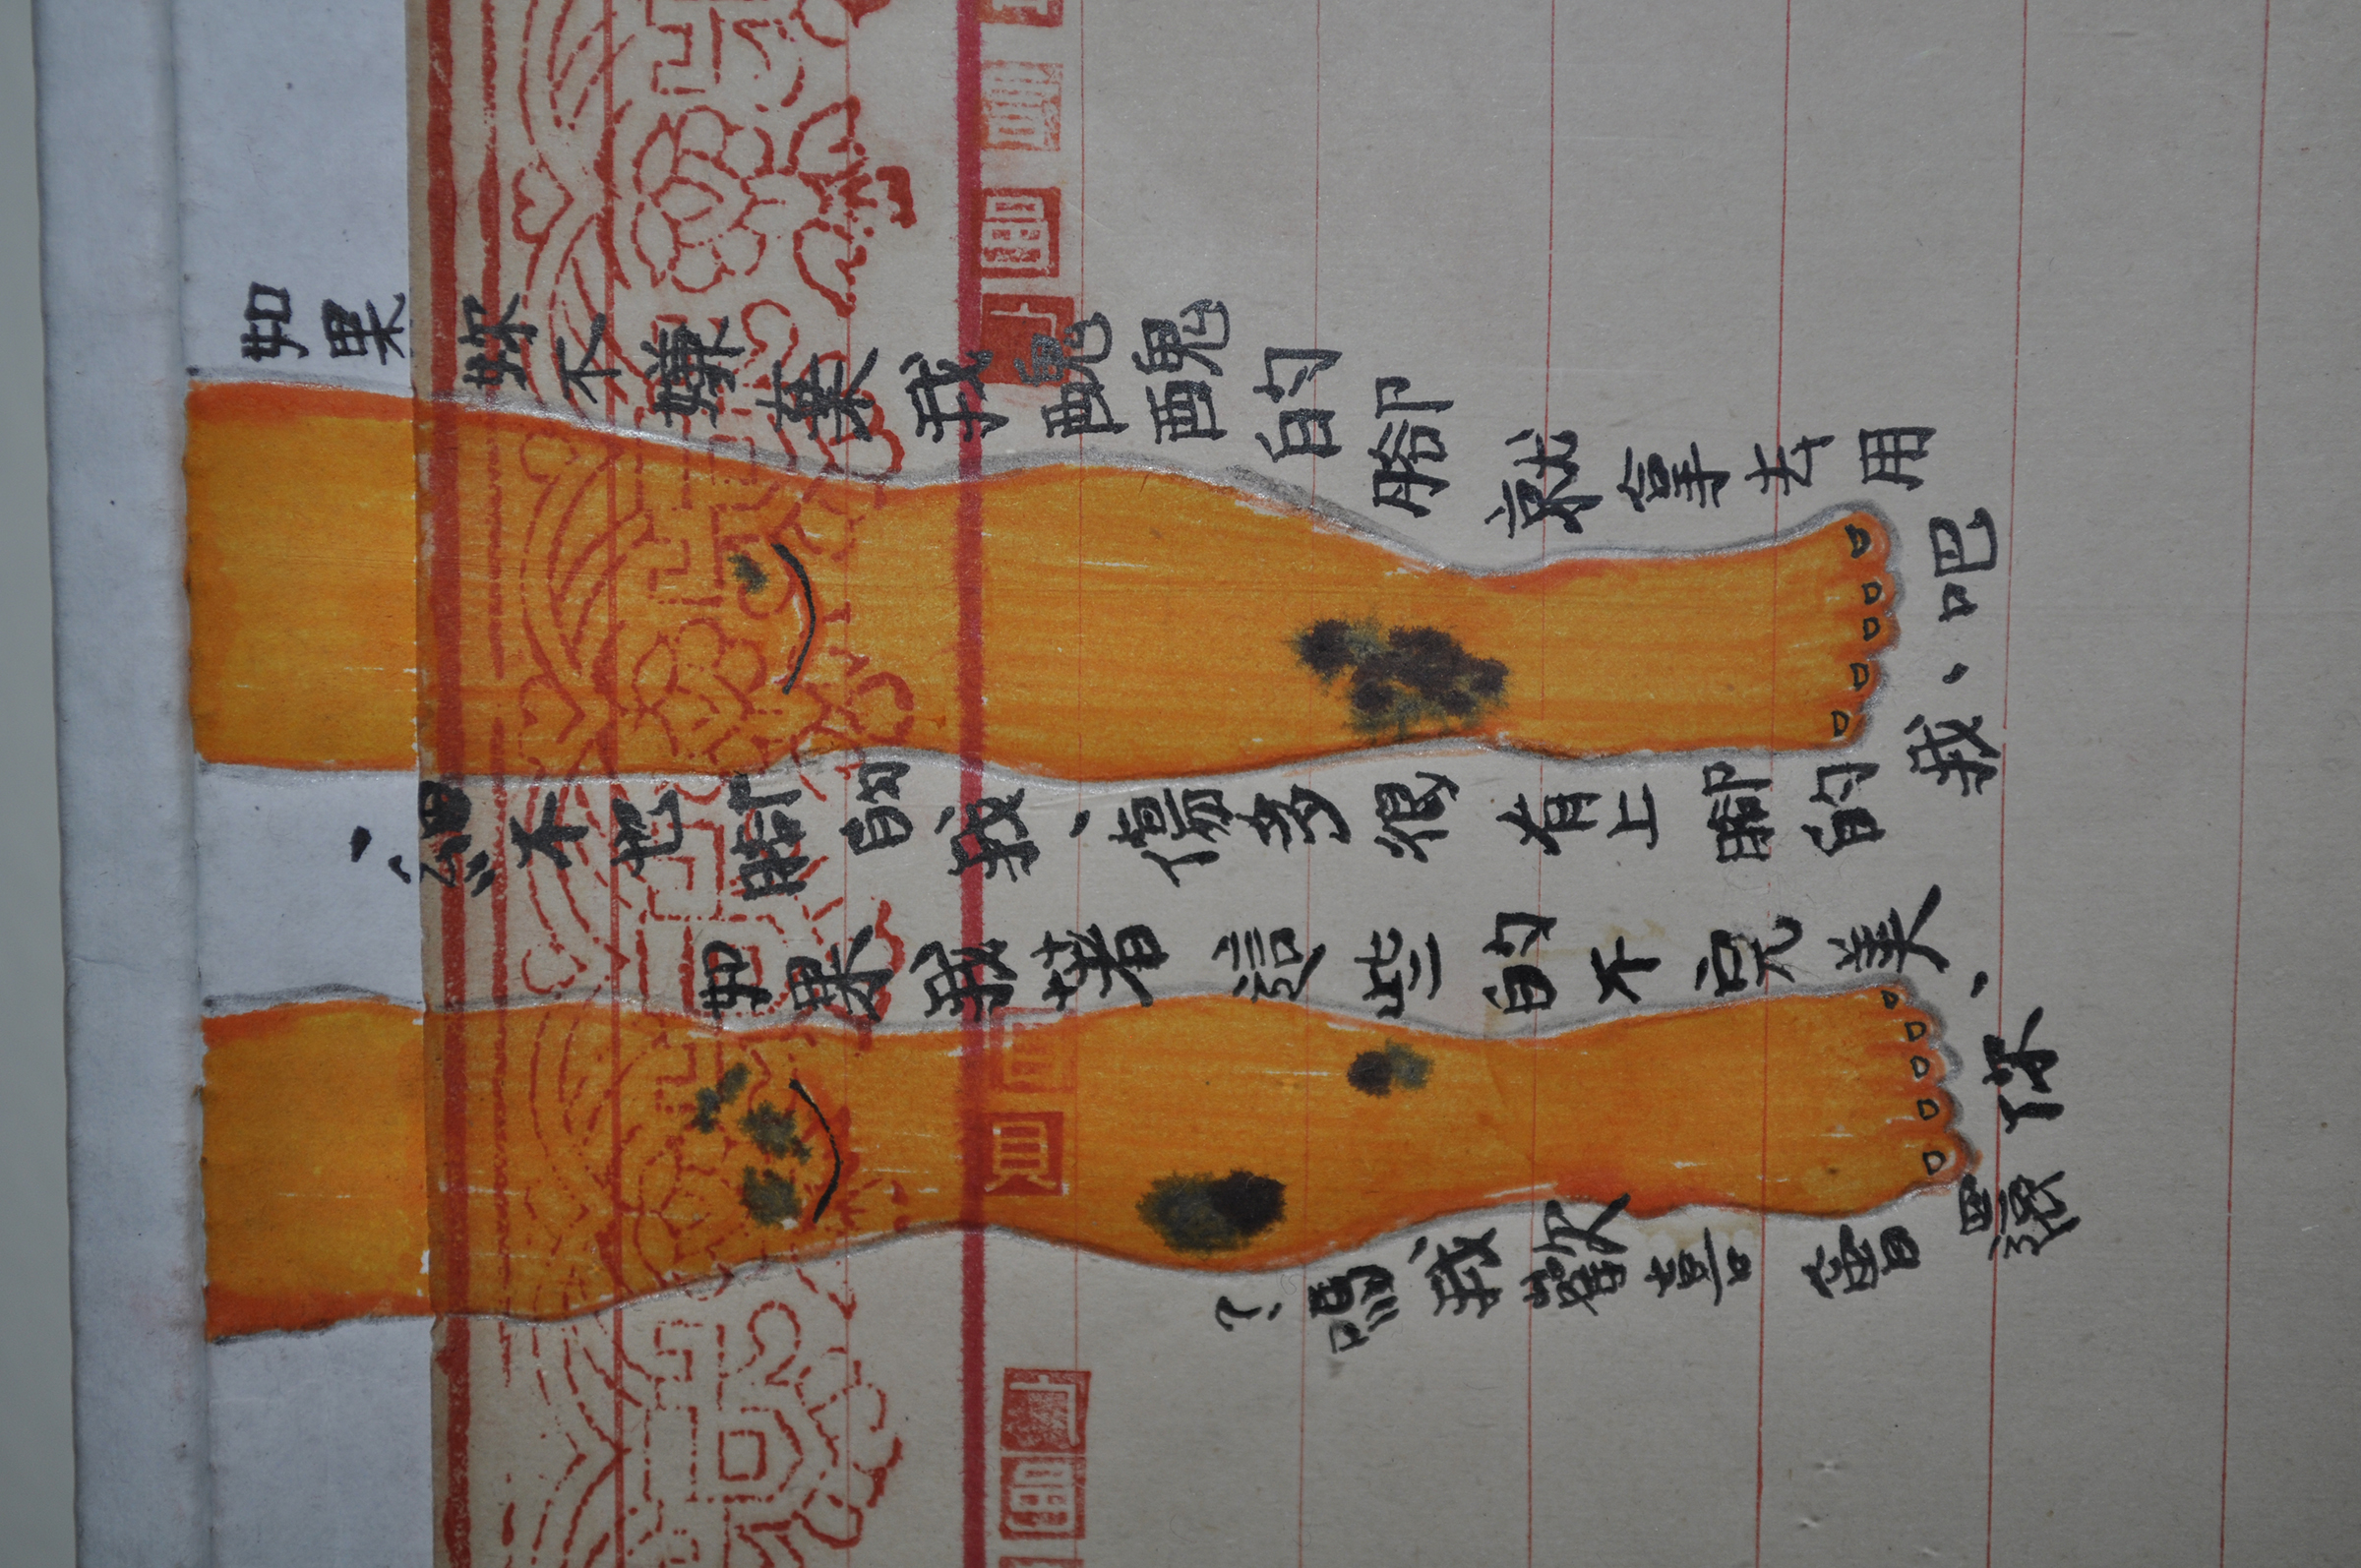 如果妳不嫌棄我醜醜的腳就拿去用吧、我的腳上有很多傷、我的腳也不、
如果我著這些的不完美、你還會喜歡我嗎?
貝